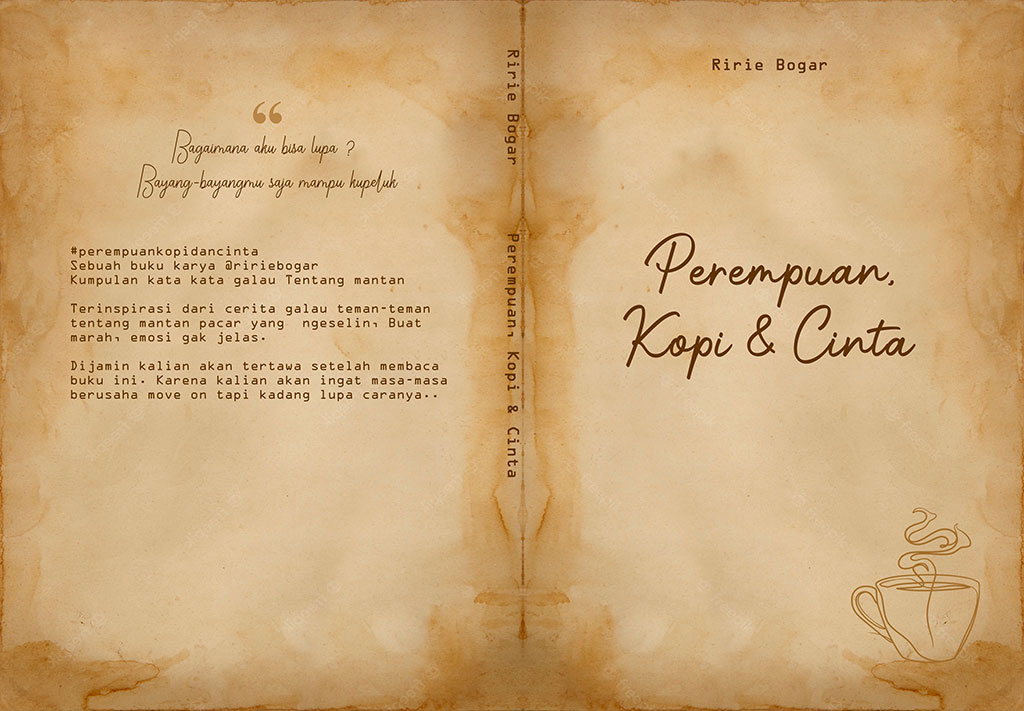 “
Bagaimana aku bisa lupa ?
Bayang-bayangmu saja mampu kupeluk
#perempuankopidancinta
Sebuah buku karya @ririebogar
Kumpulan kata kata galau Tentang mantan
Terinspirasi dari cerita galau teman-teman
tentang mantan pacar yang  ngeselin, Buat
marah, emosi gak jelas.
Dijamin kalian akan tertawa setelah membaca
buku ini. Karena kalian akan ingat masa-masa
berusaha move on tapi kadang lupa caranya..
Ririe Bogar
Perempuan, Kopi & Cinta
Ririe Bogar
Perempuan,
Kopi & Cinta